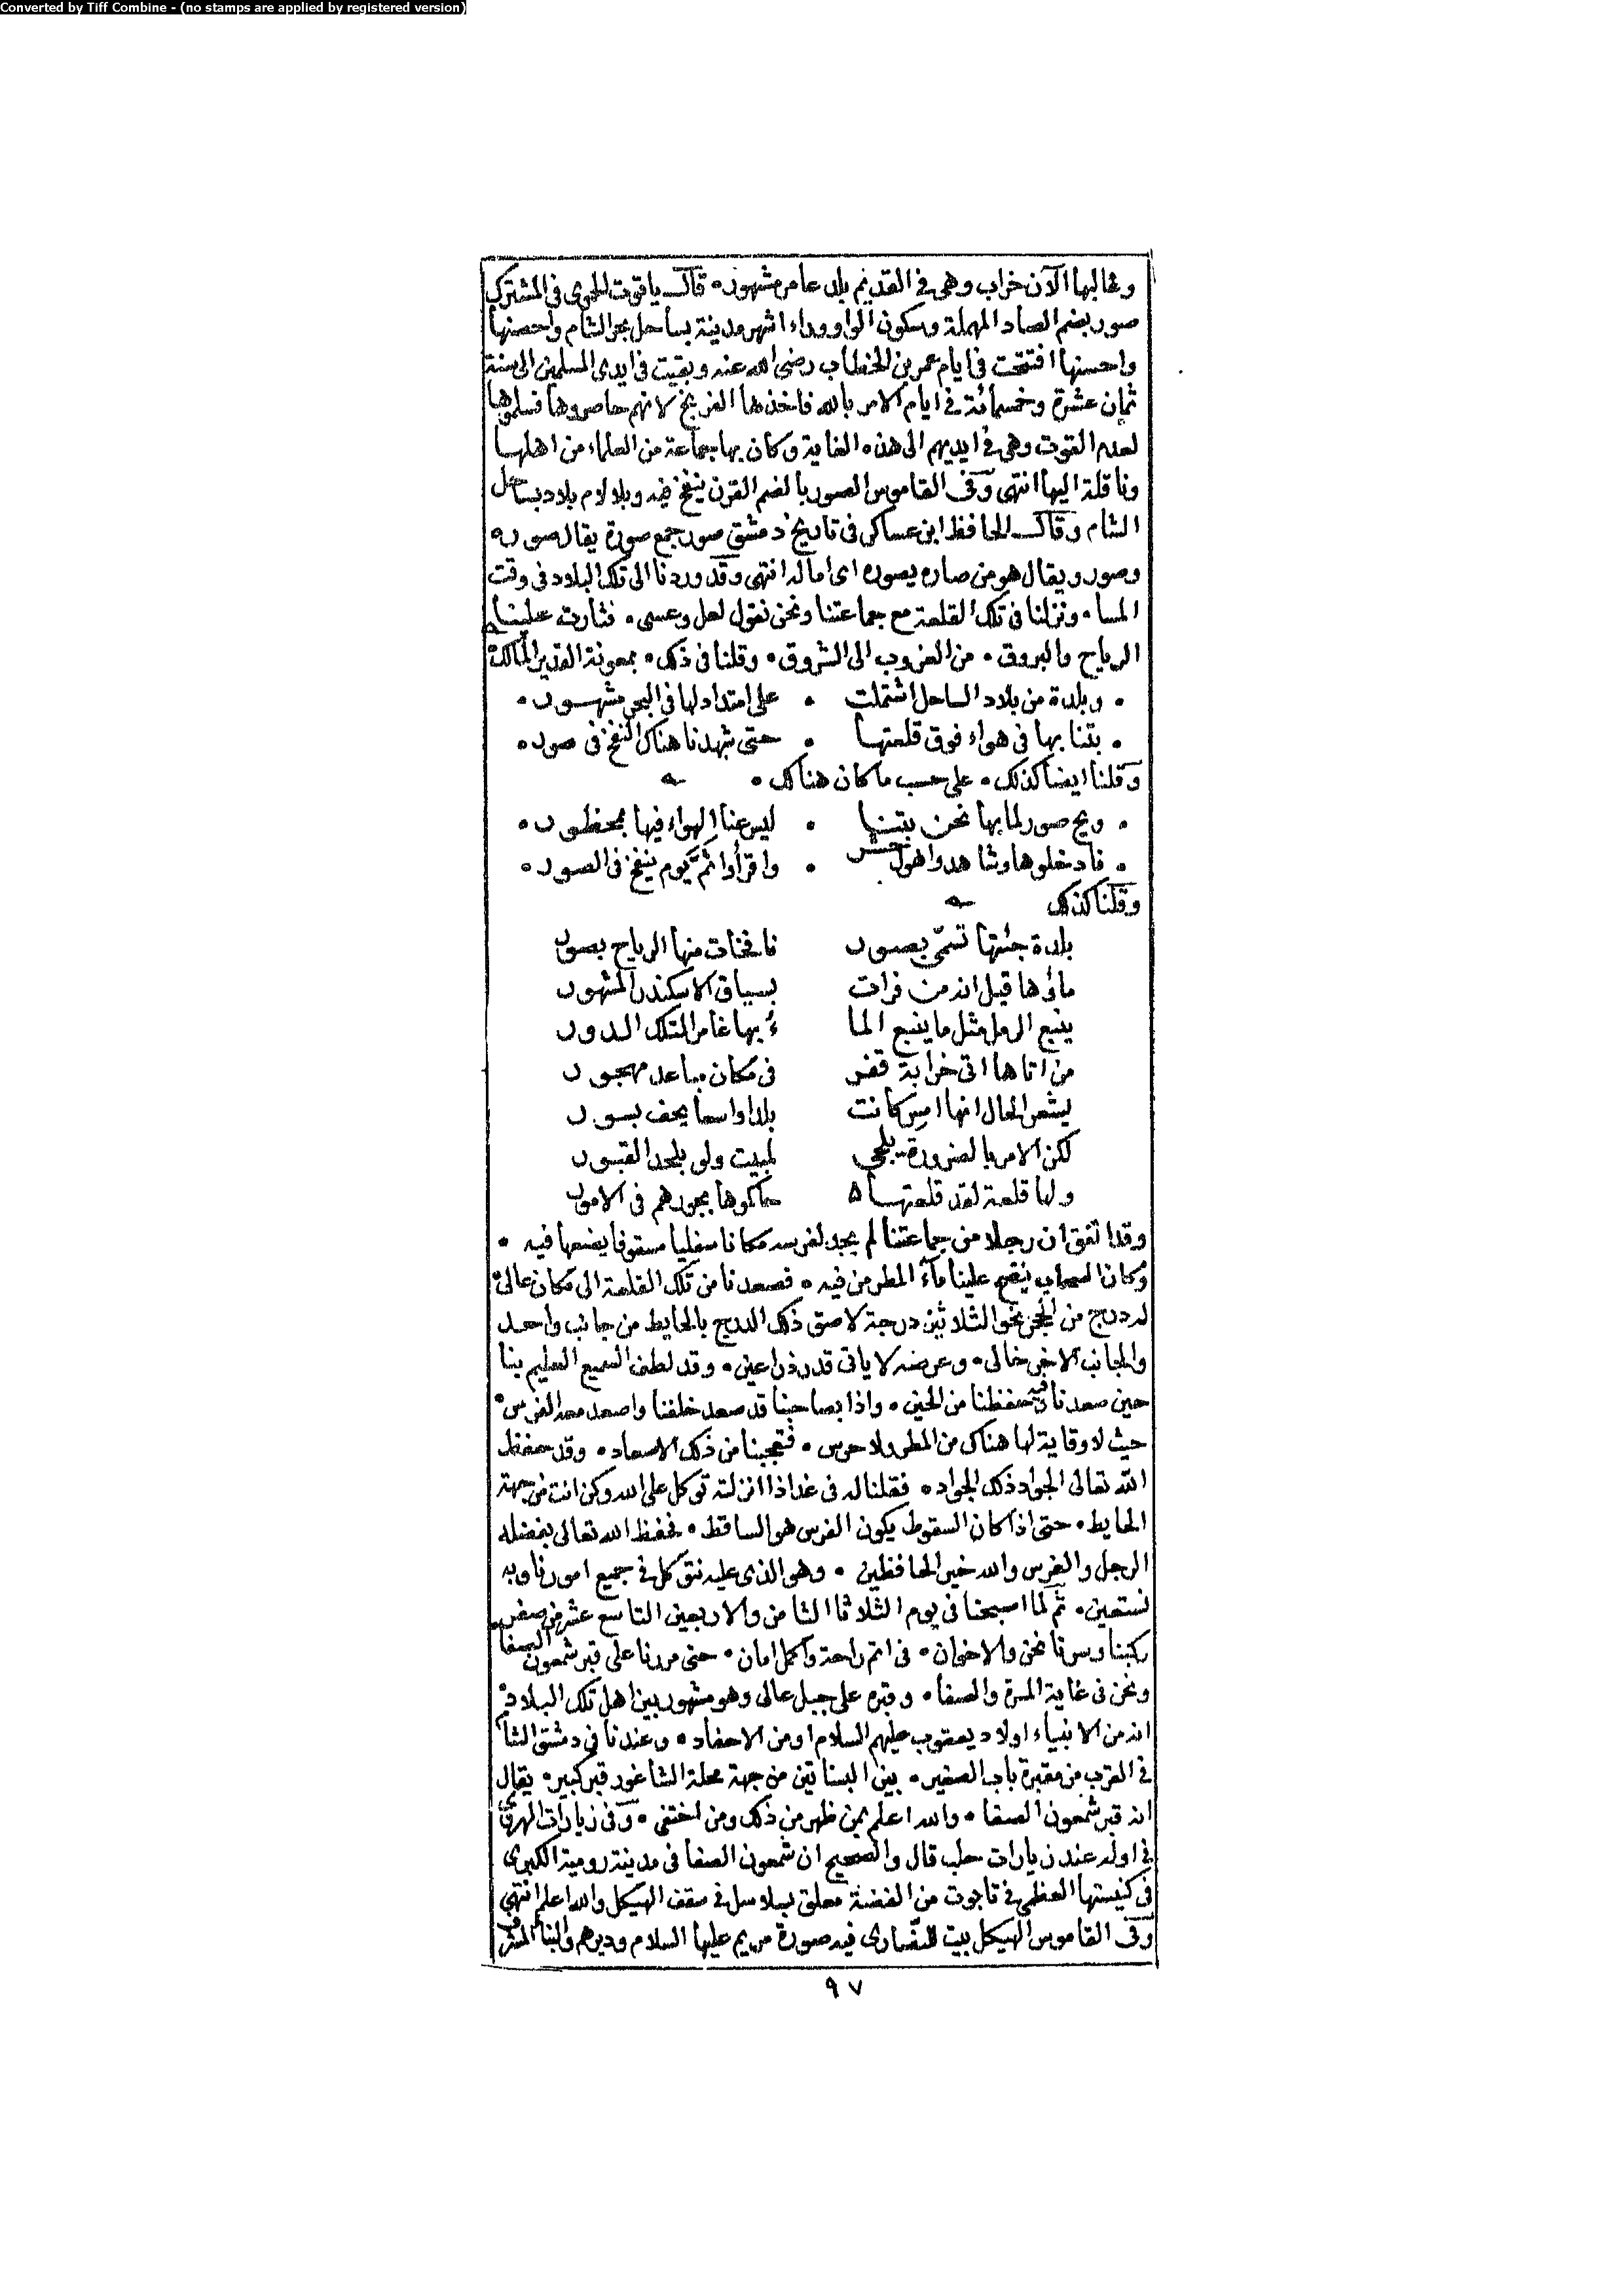 Converted by Tiff Combine - (no stamps are applied by registered version)
وغالبها الآن خراب وهي في القديم بلد عامر مشهور • قال ياقوت الحموى في المشترك
صور بضم الصاد المهملة وسكون الواو وراء اشهر مدينة بساحل بحر الشام واحصنها
واحسنها افتتحت في ايام عمر بن الخطاب رضى الله عنه وبقيت في ايدى المسلمين الى سنة
ثمان عشرة وخمسمائة في ايام الامر بالله فاخذها الفرنج لانهم حاصروها فسلموها
لعدم القوت وهي في ايديهم الى هذه الغاية وكان بها جماعة من العلماء من اهلها
وناقلة اليها انتهى وفى القاموس الصور بالضم القرن ينفخ فيه وبلا لام بلاد بساحل
الشام وقال الحافظ ابن عساكر فى تاريخ دمشق صور جمع صورة يقال صوره
وصور ويقال هو من صاره يصوره اى اماله انتهى وقد وردنا الى تلك البلاد فى وقت
المساء ونزلنا فى تلك القلعة مع جماعتنا ونحن نقول لعل وعسى • فثارت علينا
الرياح والبروق • من الغروب الى الشروق • وقلنا فى ذلك • بمعونة القدير المالك
• وبلدة من بلاد الساحل اشتملت • على امتداد لها فى البحر مشهور •
• بتنا بها فى هواء فوق قلعتها • حتى شهدنا هناك النفخ فى صور •
وقلنا ايضا كذلك • على حسب ما كان هنالك •
• ويح صور لما بها نحن بتنا • ليس عنا الهواء فيها بمحظور •
• فادخلوها وشاهدوا هول حشر • واقرأوا ثم يوم ينفخ فى الصور •
وقلنا كذلك
بلدة جئتها تسمى بصور نافخات منها الرياح بصور
ماؤها قيل انه من فرات بسياق الاسكندر المشهور
ينبع الرمل مثل ما ينبع الما ء بها غامر لتلك الدور
من اتاها اتى خرابة قفر فى مكان مباعد مهجور
يشعر الحال انها امس كانت بلدا واسعا يحف بسور
لكن الامر بالضرورة يلجى لمبيت ولو بلحد القبور
ولها قلعة لقد قلعتها حاكموها بجورهم فى الامور
وقد اتفق ان رجلا من جماعتنا لم يجد لفرسه مكانا سفليا مسقوفا يضعها فيه •
وكان السحاب علينا ماء المطر من فيه • فصعدنا من تلك القلعة الى مكان عالى
له درج من الحجر نحو الثلاثين درجة لاصق ذلك الدرج بالحايط من جانب واحد
والجانب الاخر خالى • وعرضه لا ياتى قدر ذراعين • وقد لطف السميع العليم بنا
حين صعدنا فيه فحفظنا من الحين • واذا بصاحبنا قد صعد خلفنا واصعد معه الفرس •
حيث لا وقاية لها هناك من المطر ولا حرس • فتعجبنا من ذلك الاصعاد • وقد حفظ
الله تعالى الجواد ذلك الجواد • فقلنا له فى غد اذا انزلته توكل على الله وكن انت من جهة
الحايط • حتى اذا كان السقوط يكون الفرس هو الساقط • فحفظ الله تعالى بفضله
الرجل والفرس والله خير الحافظين • وهو الذى عليه نتوكل فى جميع امورنا وبه
نستعين • ثم لما اصبحنا فى يوم الثلاثا الثامن والاربعين التاسع عشر من صفر
ركبنا وسرنا نحن والاخوان • فى اتم راحة واكمل امان • حتى مررنا على قبر شمعون الصفا
ونحن فى غاية المسرة والصفا • وقبره على جبل عالى وهو مشهور بين اهل تلك البلاد •
انه من الانبياء اولاد يعقوب عليهم السلام او من الاحفاد • وعندنا فى دمشق الشام
فى القرب من مقبرة باب الصغير • بين البساتين من جهة محلة الشاغور قبر كبير • يقال
انه قبر شمعون الصفا • والله اعلم بمن ظهر من ذلك ومن اختفى • وفى زيارات الهروى
فى اوله عند زيارات حلب قال والصحيح ان شمعون الصفا فى مدينة رومية الكبرى
فى كنيستها العظمى فى تابوت من الفضة معلق بسلاسل فى سقف الهيكل والله اعلم انتهى
وفى القاموس الهيكل بيت للنصارى فيه صورة مريم عليها السلام وديرهم والبناء المشرف
٩٧